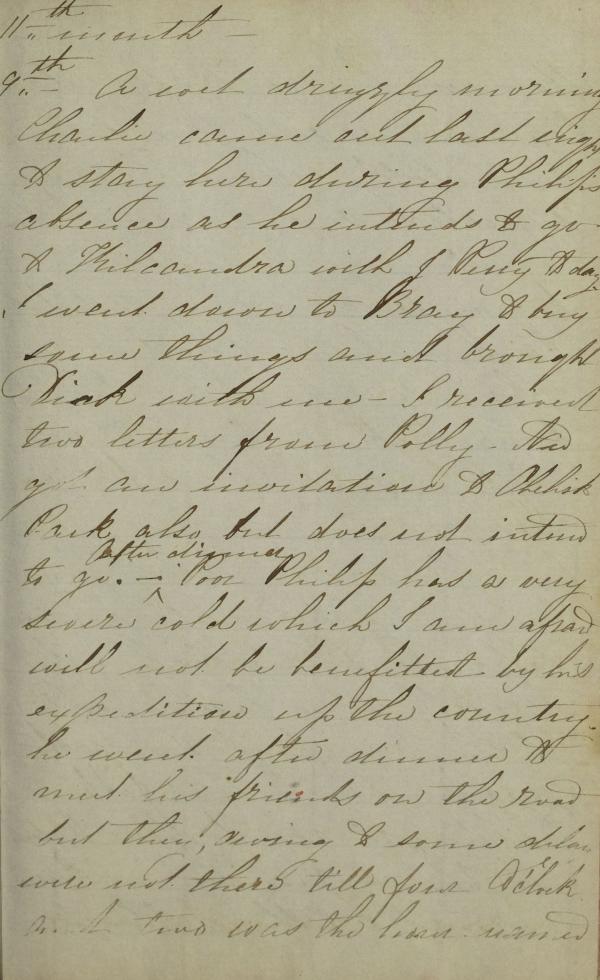 11th month -
9th - A wet drizzly morning
Charlie came out last night
to stay here during Philip's
absence as he intends to go
to Kilcandra with J Penny to day
I went down to Bray to buy
some things and brought
Dick with me - I received
two letters from Polly - Ned
got an invitation to Obelisk
Park also but does not intend
After dinner
to go. - Poor Philip has a very
severe cold which I am afraid
will not be benefitted by his
expedition up the country.
he went after dinner to
meet his friends on the road
but they, owing to some delay
were not there till four O'clock
and two was the hour named